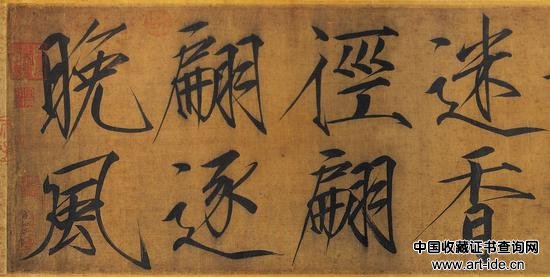 迷香
徑翩
翩逐
晚風
中国收藏证书查询网
www.art-ide.cn